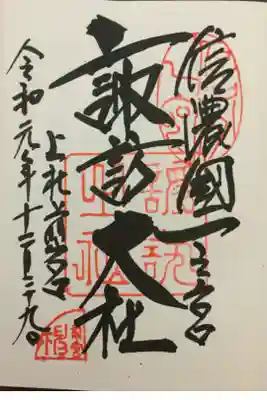 信濃國一之宮
諏訪大社
上社前宮
令和元年十二月二十九日